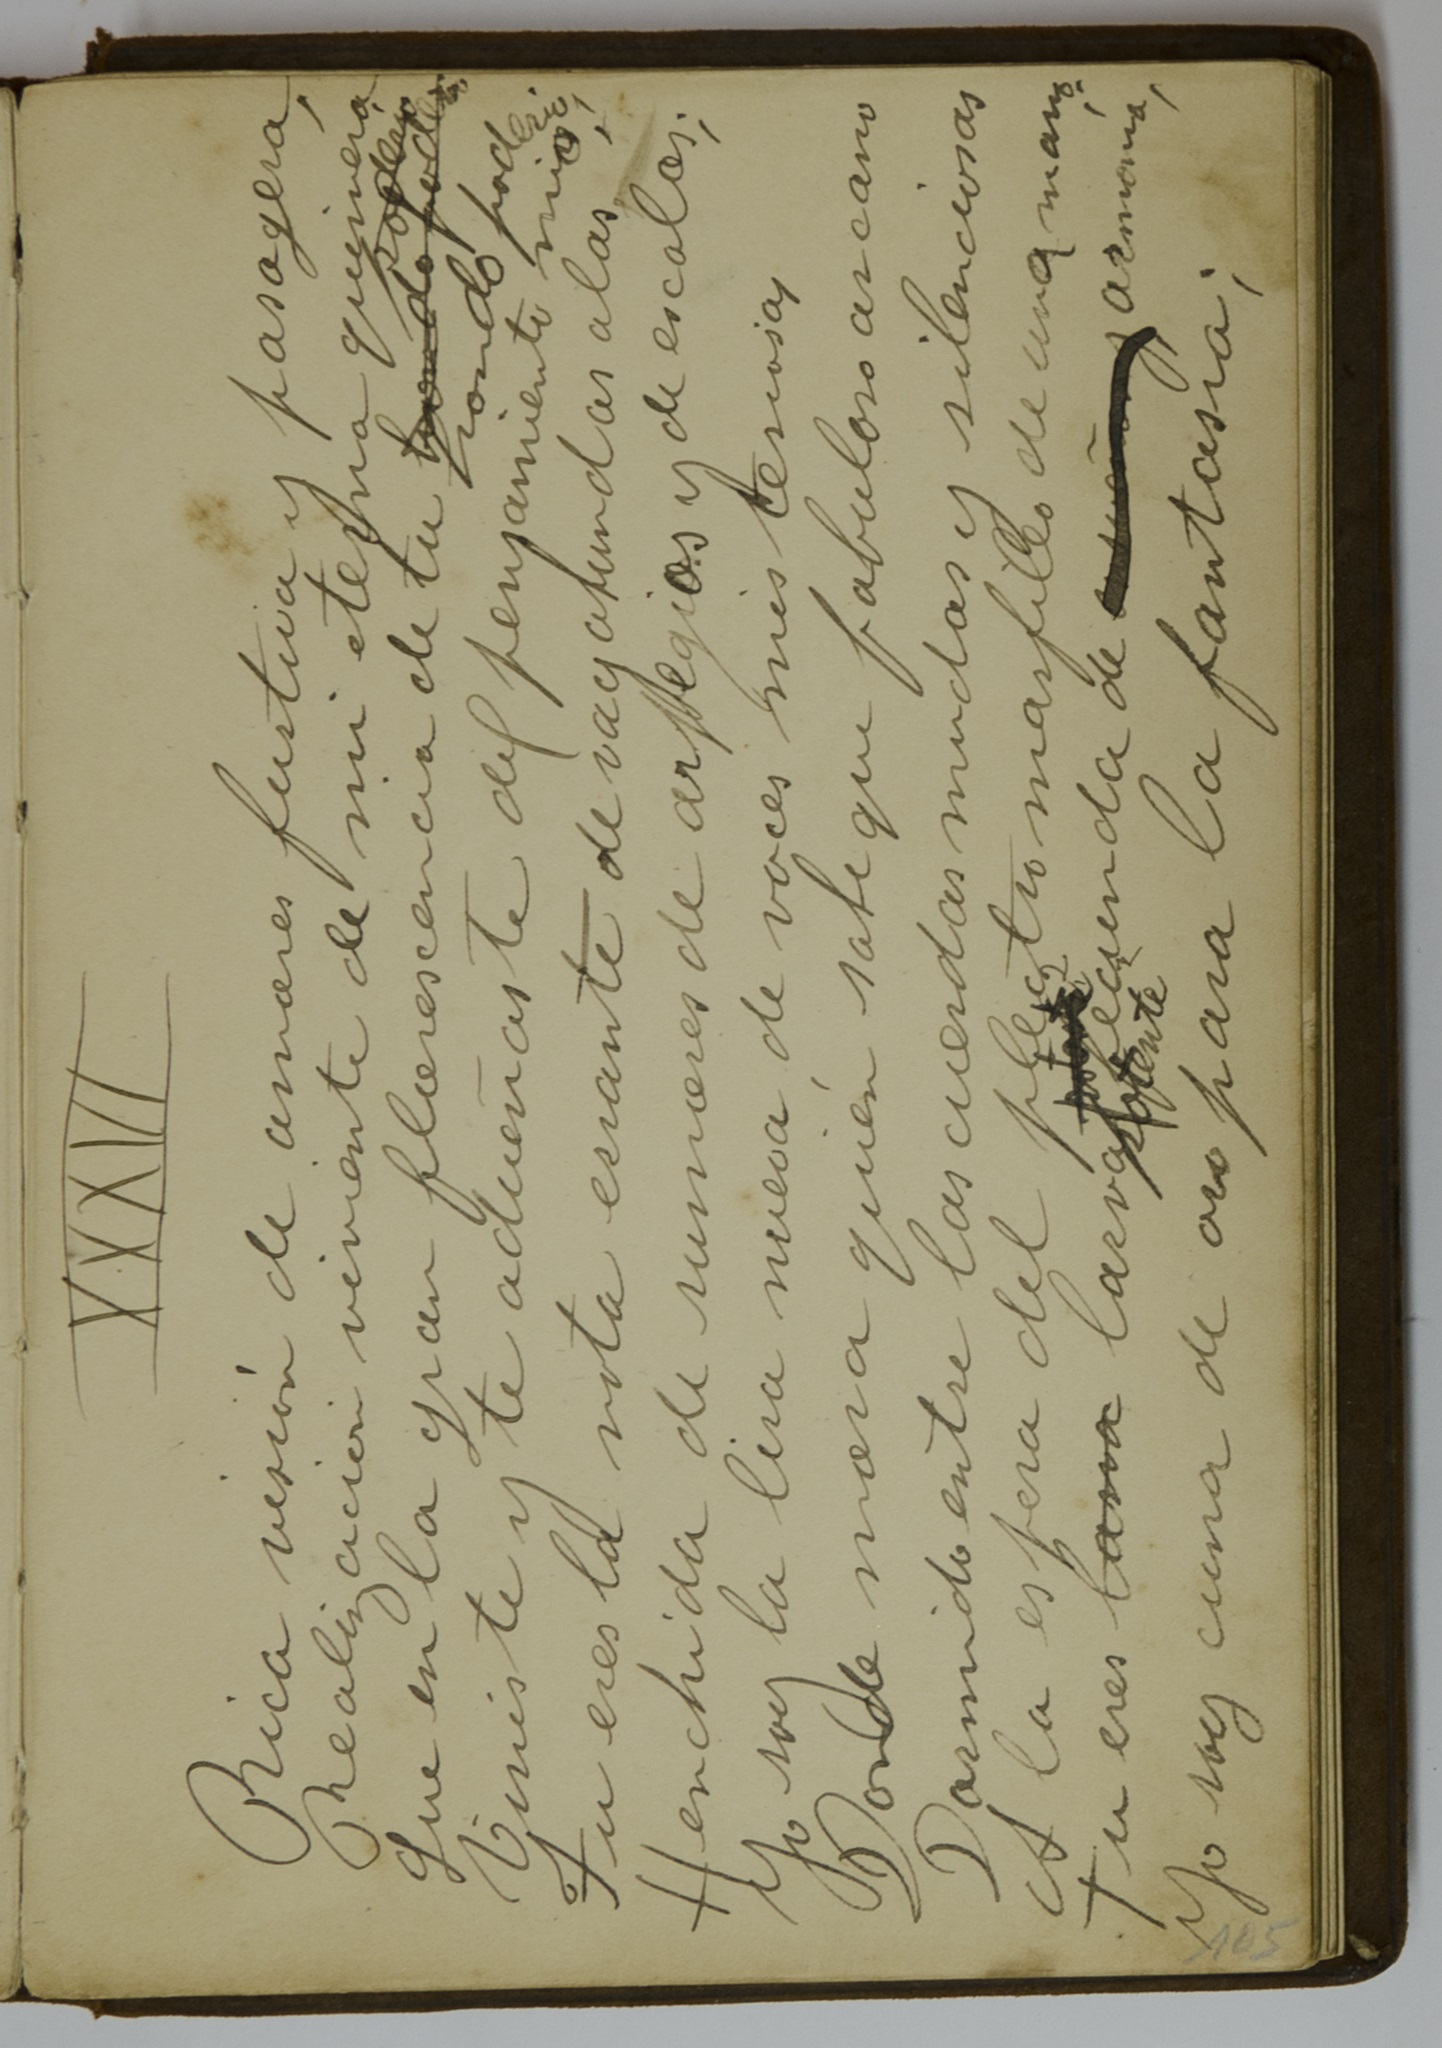 XXXII
Rica visión de amores furtiva y pasagera,
Realización viviente de mi eterna quimera
Que en la gran fluorescencia de tu hondo poderio
poderio
hondo poderio
Viniste y te adueñaste del pensamiento mio;
Tu eres la nota errante de vagabundas alas,
Henchida de rumores de arpegios y de escalas;
Yo soy la lira nueva de voces misteriosas
Donde mora quién sabe que fabuloso arcano
Dormido entre las cuerdas mudas y silenciosas
A la espera del plectro marfileo de una mano;
Tu eres larva larva fecunda de armonia,
potente
Yo soy cuna de oro para la fantasia;
105